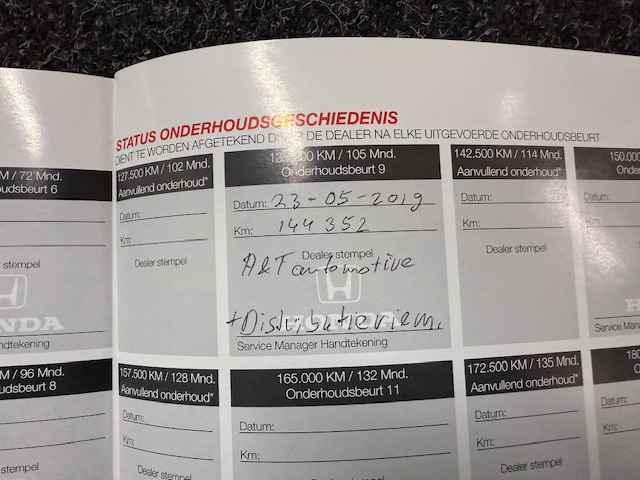 STATUS ONDERHOUDSGESCHIEDENIS
DIENT TE WORDEN AFGETEKEND DOOR DE DEALER NA ELKE UITGEVOERDE ONDERHOUDSBEURT
M / 72 Mnd.
oudsbeurt 6
Dealer stempel
HONDA
tekening
127.500 KM / 102 Mnd.
Aanvullend onderhoud*
Datum:
Km:
Dealer stempel
KM / 105 Mnd.
Onderhoudsbeurt 9
Datum: 23-05-2019
Km: 144 352
Dealer stempel
A&T automotive
HONDA
+Distributieriem.
Service Manager Handtekening
142.500 KM / 114 Mnd.
Aanvullend onderhoud*
Datum:
Km:
Dealer stempel
150.000
Onderh
Datum:
Km:
Service Manager
M / 96 Mnd.
oudsbeurt 8
stempel
157.500 KM / 128 Mnd.
Aanvullend onderhoud*
Datum:
Km:
Dealer stempel
165.000 KM / 132 Mnd.
Onderhoudsbeurt 11
Datum:
Km:
Dealer stempel
172.500 KM / 135 Mnd.
Aanvullend onderhoud*
Datum:
Km:
Dealer stempel
180
Datum:
Km: